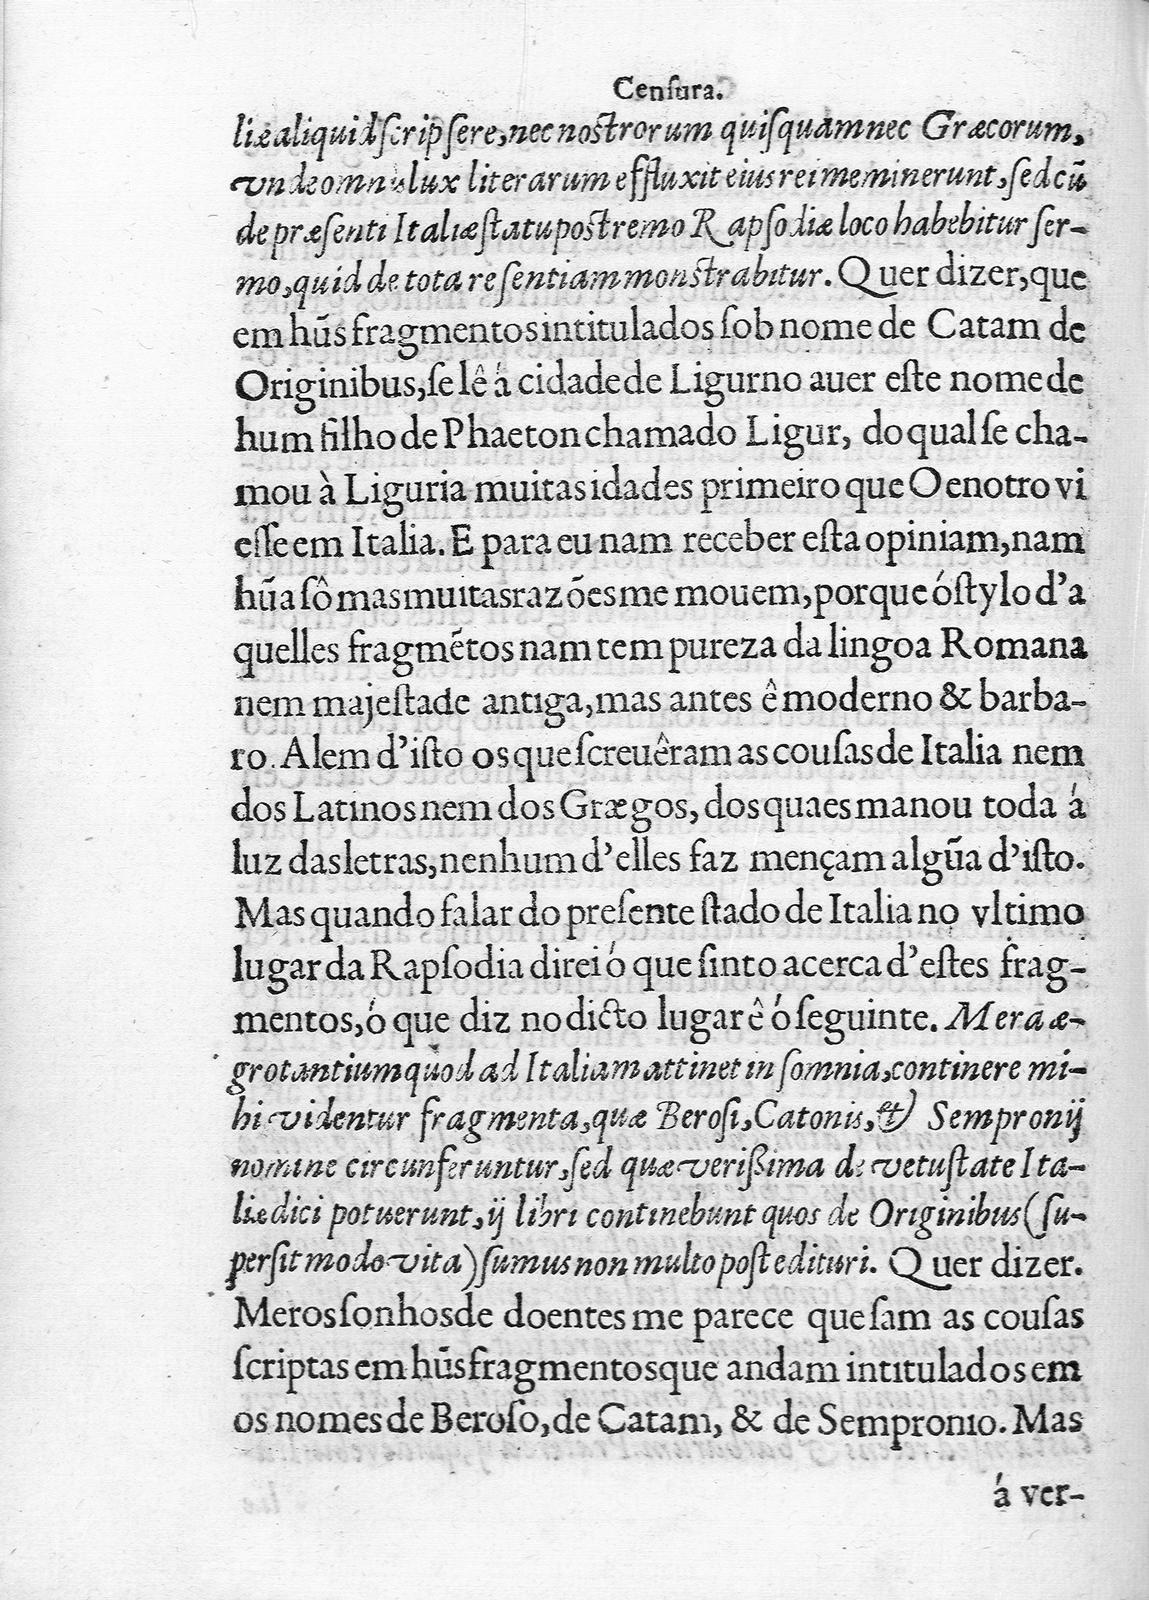 Cenſura.
liæ aliquid ſcripſere, nec noſtrorum quiſquam nec Græcorum,
vnde omnis lux literarum effluxit eius rei meminerunt, ſed cũ
de præſenti Italiæ ſtatu poſtremo Rapſodiæ loco habebitur ſer-
mo, quid de tota re ſentiam monſtrabitur. Quer dizer, que
em hũs fragmentos intitulados ſob nome de Catam de
Originibus, ſe lê á cidade de Ligurno auer eſte nome de
hum filho de Phaeton chamado Ligur, do qual ſe cha-
mou à Liguria muitas idades primeiro que Oenotro vi
eſſe em Italia. E para eu nam receber eſta opiniam, nam
hũa ſô mas muitas razões me mouem, porque ó ſtylo d'a
quelles fragmẽtos nam tem pureza da lingoa Romana
nem majeſtade antiga, mas antes ê moderno & barba-
ro. Alem d'iſto os que ſcreuêram as couſas de Italia nem
dos Latinos nem dos Græegos, dos quaes manou toda á
luz das letras, nenhum d'elles faz mençam algũa d'iſto.
Mas quando falar do preſente ſtado de Italia no vltimo
lugar da Rapſodia direi ó que ſinto acerca d'eſtes frag-
mentos, ó que diz no dicto lugar ê ó ſeguinte. Mera æ-
grotantium quòd ad Italiam attinet inſomnia, continere mi-
hi videntur fragmenta, quæ Beroſi, Catonis, & Sempronij
nomine circunferuntur, ſed quæ verißima de vetuſtate Ita-
liæ dici potuerunt, ij libri continebunt quos de Originibus (ſu-
perſit modo vita) ſumus non multo poſt edituri. Quer dizer.
Meros ſonhos de doentes me parece que ſam as couſas
ſcriptas em hũs fragmentos que andam intitulados em
os nomes de Beroſo, de Catam, & de Sempronio. Mas
á ver-